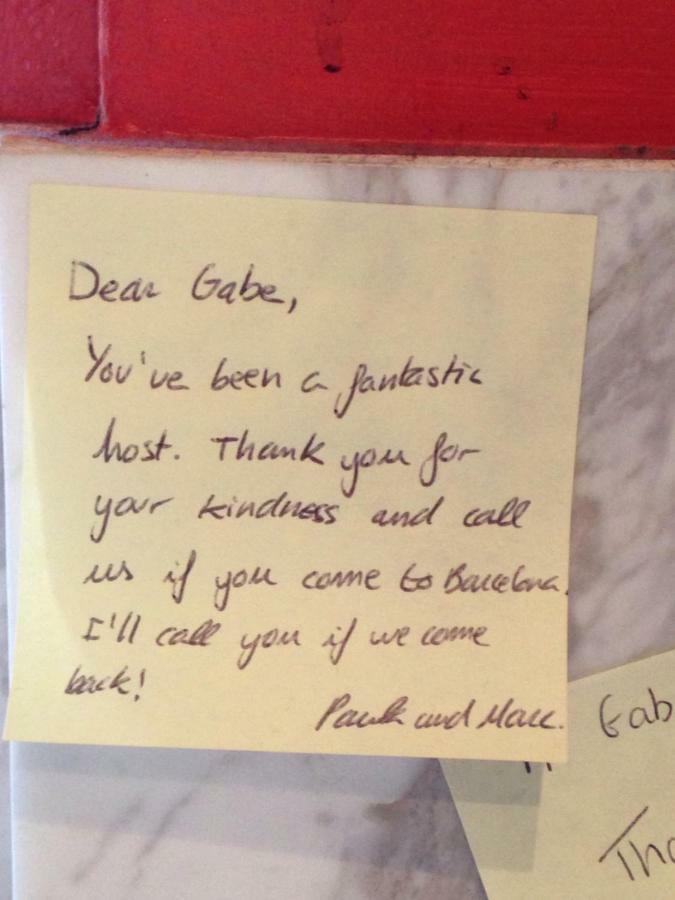 Dear Gabe,
You've been a fantastic
host. Thank you for
your kindness and call
us if you come to Barcelona.
I'll call you if we come
back!
and Marc.
Gab
Tha